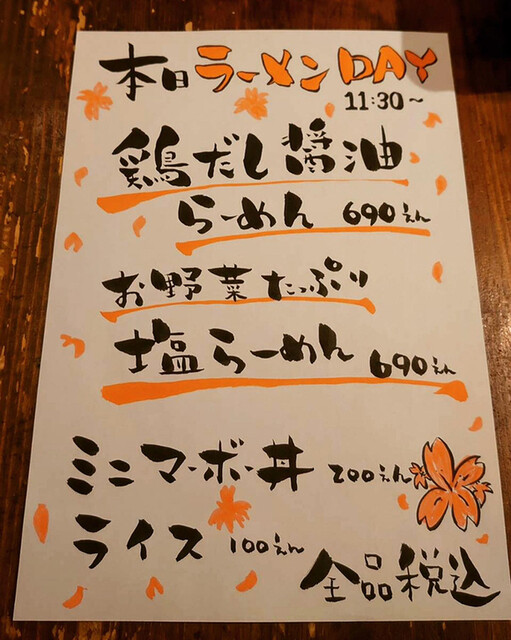 本日ラーメンDAY
11:30～
鶏だし醤油
らーめん 690えん
お野菜たっぷり
塩らーめん 690えん
ミニマーボー丼 200えん
ライス 100えん
全品税込